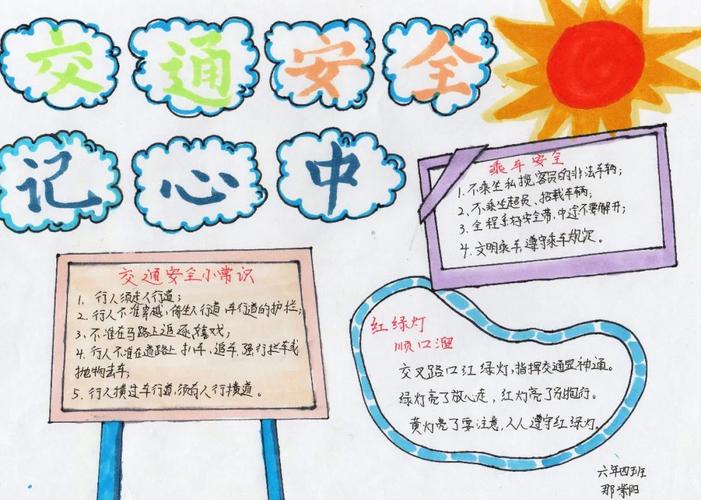 交通安全
记心中
乘车安全
1. 不乘坐私揽客员的非法车辆；
2. 不乘坐超员、搭载车辆；
3. 全程系好安全带，中途不要解开；
4. 文明乘车，遵守乘车规定。
交通安全小常识
1. 行人须走人行道；
2. 行人不准穿越、倚坐人行道、车行道的护栏；
3. 不准在马路上追逐嬉戏；
4. 行人不准在道路上扒车、追车、强行拦车或
抛物击车；
5. 行人横过车行道，须走人行横道。
红绿灯
顺口溜
交叉路口红绿灯，指挥交通显神通。
绿灯亮了放心走，红灯亮了别抢行。
黄灯亮了要注意，人人遵守红绿灯。
六年四班
那紫阳